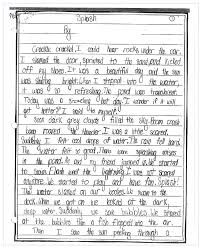 Splash
By
Crackle crackle! I could hear rocks under the car.
I opened the door, sprinted to the sand and kicked
off my shoes. It was a beautiful day and the sun
was shining bright. When I stepped into the water,
it was so refreshing. The pond was
Today was a hot day. I wonder if it will
get hotter? I said to myself.
Soon dark grey clouds filled the sky. Boom crash
boom roared the thunder. I was a little scared.
Suddenly I felt cool drops of water. The rain felt hard.
The water felt so good. There were splashing noises
in the pond. Me and my friend jumped as we started
to Flash went the lightning. I was not scared
anymore. We started to play and have fun. Splish!
The water splashed on our bodies. We swam to the
dock. When we got on we looked at the dark,
deep water. Suddenly we saw bubbles. We stared
at the bubbles as a fish flapped into the air.
Then I saw the sun peeking through